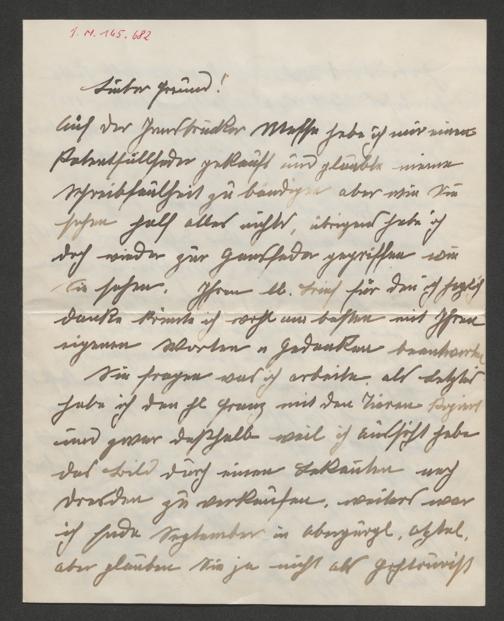 I. N. 145.682
Lieber Freund!
Auf der Innsbrucker Messe habe ich mir einen
Patentfüllfeder gekauft und glaubte meine
Schreibfaulheit zu bändigen aber wie Sie
sehen half alles nichts, übrigens habe ich
doch wieder zur Gansfeder gegriffen wie
Sie sehen. Ihren lb. Brief für den ich herzlich
danke könnte ich wohl am besten mit Ihren
eigenen Worten u Gedanken beantworten
Sie fragen was ich arbeite, als letztes
habe ich den hl Franz mit den Tieren
und zwar deßhalb weil ich Aussicht habe
das Bild durch einen Bekannten nach
Dresden zu verkaufen, weiters war
ich Ende September in Obergurgl, Ötztal,
aber glauben Sie ja nicht als